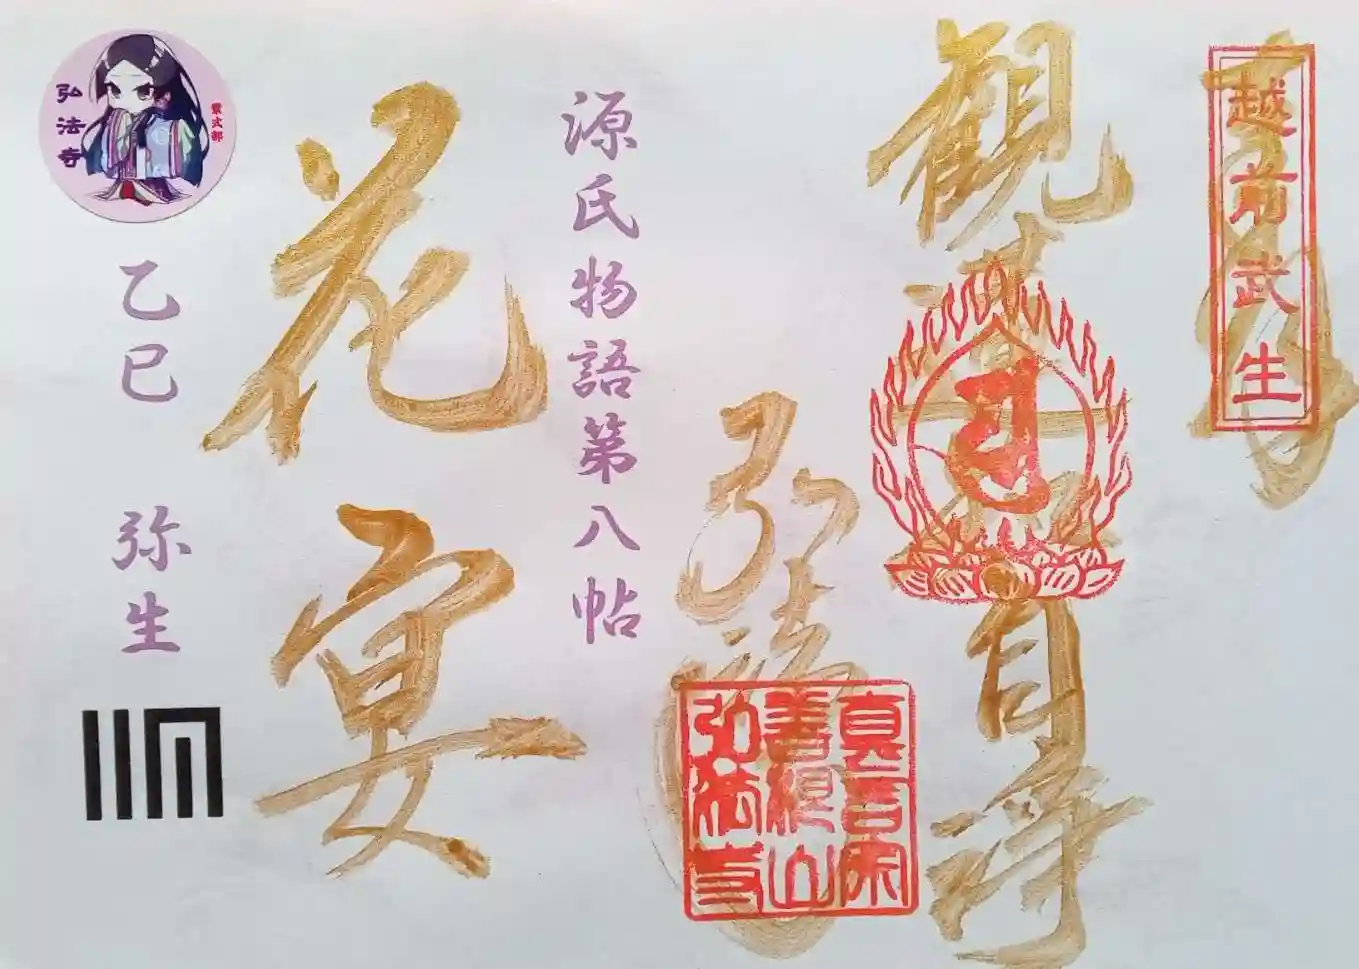 奉拝
越前武生
観世音自在尊
真言宗
善根山
弘法寺
弘法寺
源氏物語第八帖
花宴
弘法寺
紫式部
乙巳
弥生